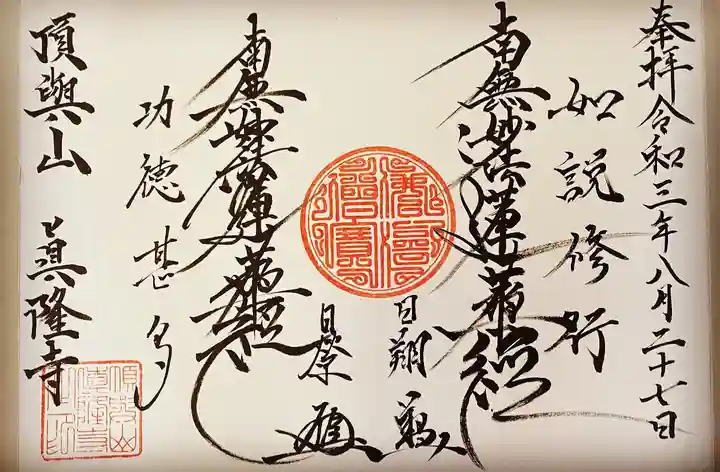 奉拝令和三年八月二十七日
如説修行
南無妙法蓮華経
日翔
南無妙法蓮華経
功徳甚多
頂輿山 眞隆寺